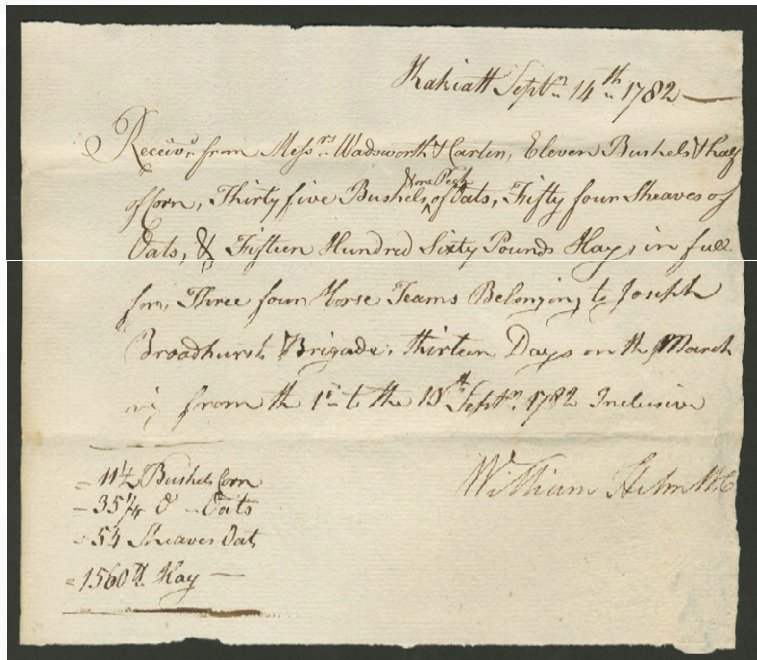 Kakiatt Septr. 14th 1782
Receivd from Messrs. Wadsworth & Carter, Eleven Bushels & half
of Corn, Thirty five Bushels & one Peck of Oats, Fifty four Sheaves of
Oats, & Fifteen Hundred Sixty Pounds Hay, in full
for, Three four Horse Teams Belonging to Joseph
Broadhurst Brigade, thirteen Days on the March
from th 1st to the 13th Septr. 1782 Inclusive
William Helm
11½ Bushels Corn
35¼ Do Oats
54 Sheaves Oat
1560 lb Hay